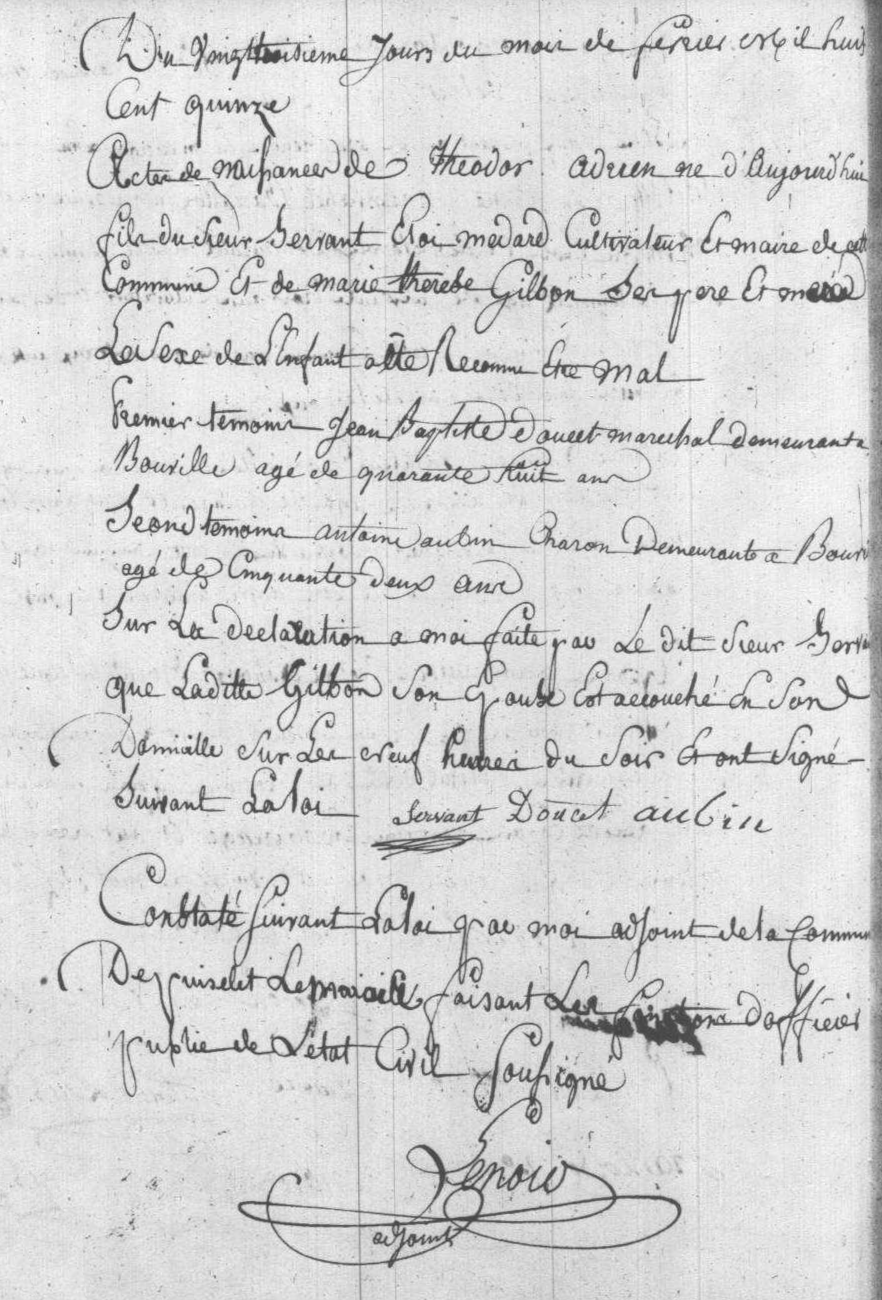 Du Vingttroisieme Jours du mois de ferier Mil huit
Cent quinze
Acter de naissancer de Theodor adrien ne d'Aujourdhui
fils du sieur Servant Eloi medard Cultivateur Et maire de cett
Commune Et de marie therese Gilbon Ses pere Et mere
Le Sexe de L'Enfant a Ete Reconnu Etre mal
Premier temoins Jean Baptiste doucet marechal demeurant a
Bouville agé de quarante huit ans
Second temoins antoine aubin Charon Demeurante a Bouvi
agé de Cinquante deux ans
Sur La declaration a moi faite par Le dit sieur Serva
que Laditte Gilbon Son Epouse Est accouché En Son
Domicille Sur Les neuf heures du Soir Et ont Signé
Suivant La loi Servant Doucet aubin
Constaté Suivant La loi par moi adjoint de la Commun
De puiselet Lemaraist faisant Les fonctions D'officier
publie de L'état Civil Soussigné
Lenoir
adjoint